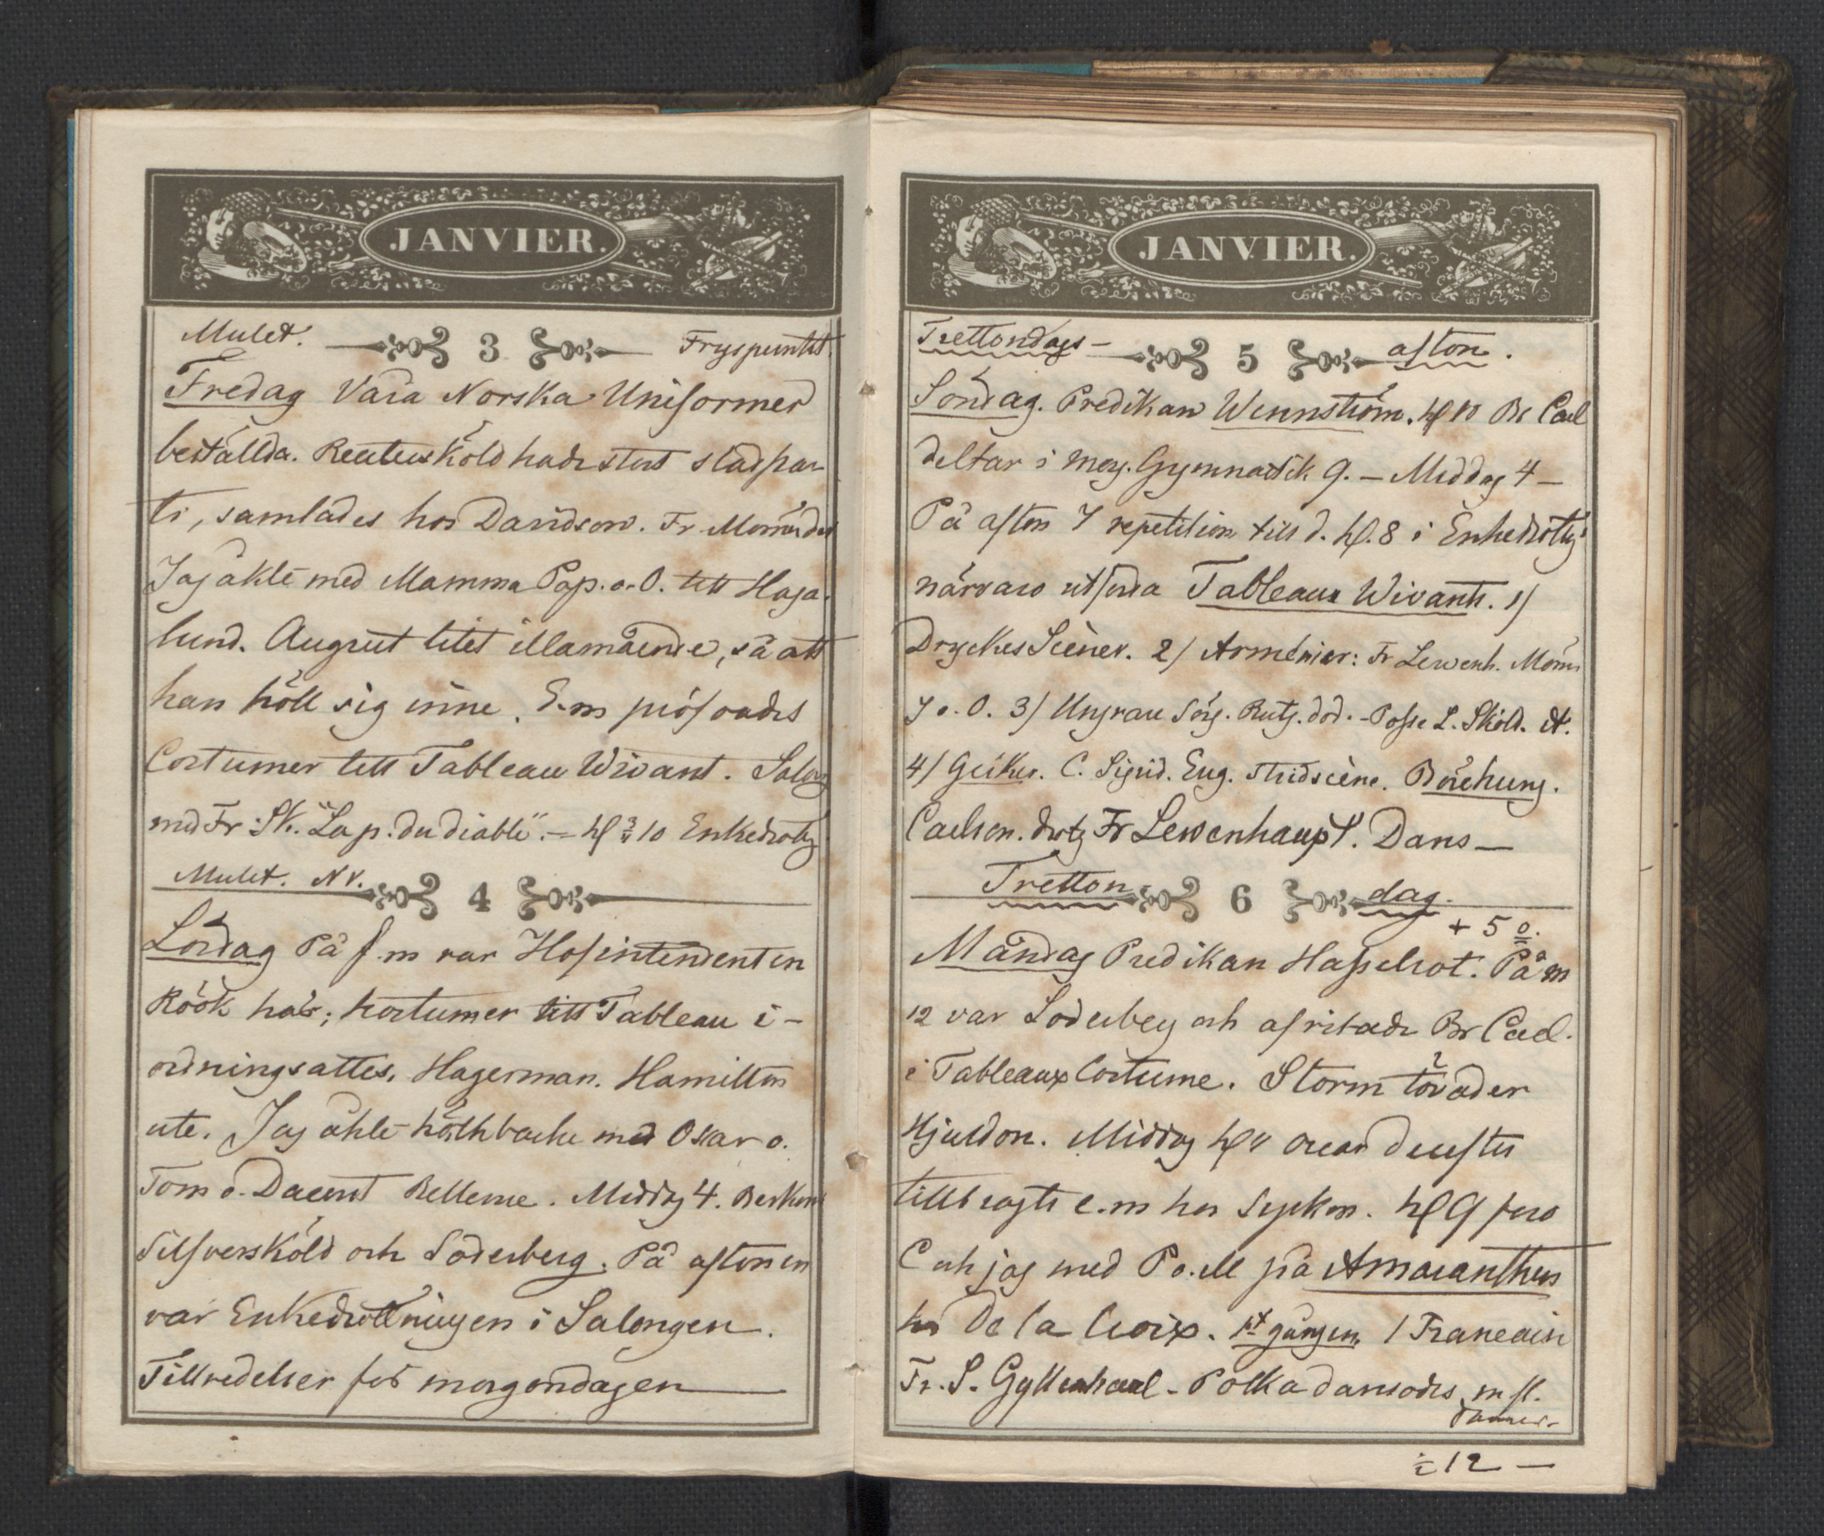 JANVIER.
Mulet. 3 Fryspunkt.
Fredag Våra Norska Uniformer
beställda. Reutersköld hade stort slädpar-
ti, samlades hos Davidson. Fr. Mörner
Jag åkte med Mamma Pap. o. O. till Haga-
lund. August litet illamående, så att
han höll sig inne. E.m pröfvades
Costumer till Tableau Wivant. Salong
med Fr: Sk. "La p. du diable". – kl ¾ 10 Enkedrotg
Mulet. Nv. 4
Lördag På f.m var Hofintendenten
Röök här; kostumer till Tableau i-
ordningsattes. Hagerman. Hamilton
ute. Jag åkte kälkbacke med Oscar o.
Tom o. Daevel Bellevue. Middag 4.
Silfversköld och Söderberg. På aftonen
var Enkedrottningen i Salongen.
Tillredelser för morgondagen —
JANVIER.
Trettondags- 5 afton.
Söndag. Predikan Wennström. kl 10 Br Carl
deltar i morg. Gymnastik 9. – Middag 4 –
På afton 7 repetition till d. kl. 8 i Enkedrottgs
närvaro utförda Tableaux Wivants. 1/
DryckesScèner. 2/ Arménier: Fr Lewenh. Mörn.
J o. O. 3/ Ungrare Sörg. Rutg. död. - Posse L. Sköld. A.
4/ Greker. C. Sigrid. Eug. Stridscène. Böschung.
Carlson. drotg Fr Lewenhaupt. Dans —
Tretton 6 dag.
+ 5 o.
Måndag Predikan Hasselrot. På m
12 var Söderberg och afritade Br Carl.
i Tableaux Costume. Storm töväder
Hjuldon. Middag kl 4 Oscar derefter
tillbragte e.m hos Syrkon. kl 9 foro
C och jag med P o. M på Amaranthen
hos De la Croix. 1st gången / Francaise
Fr. S. Gyllenhaal - Polka dansades m fl.
danser-
i 12 —